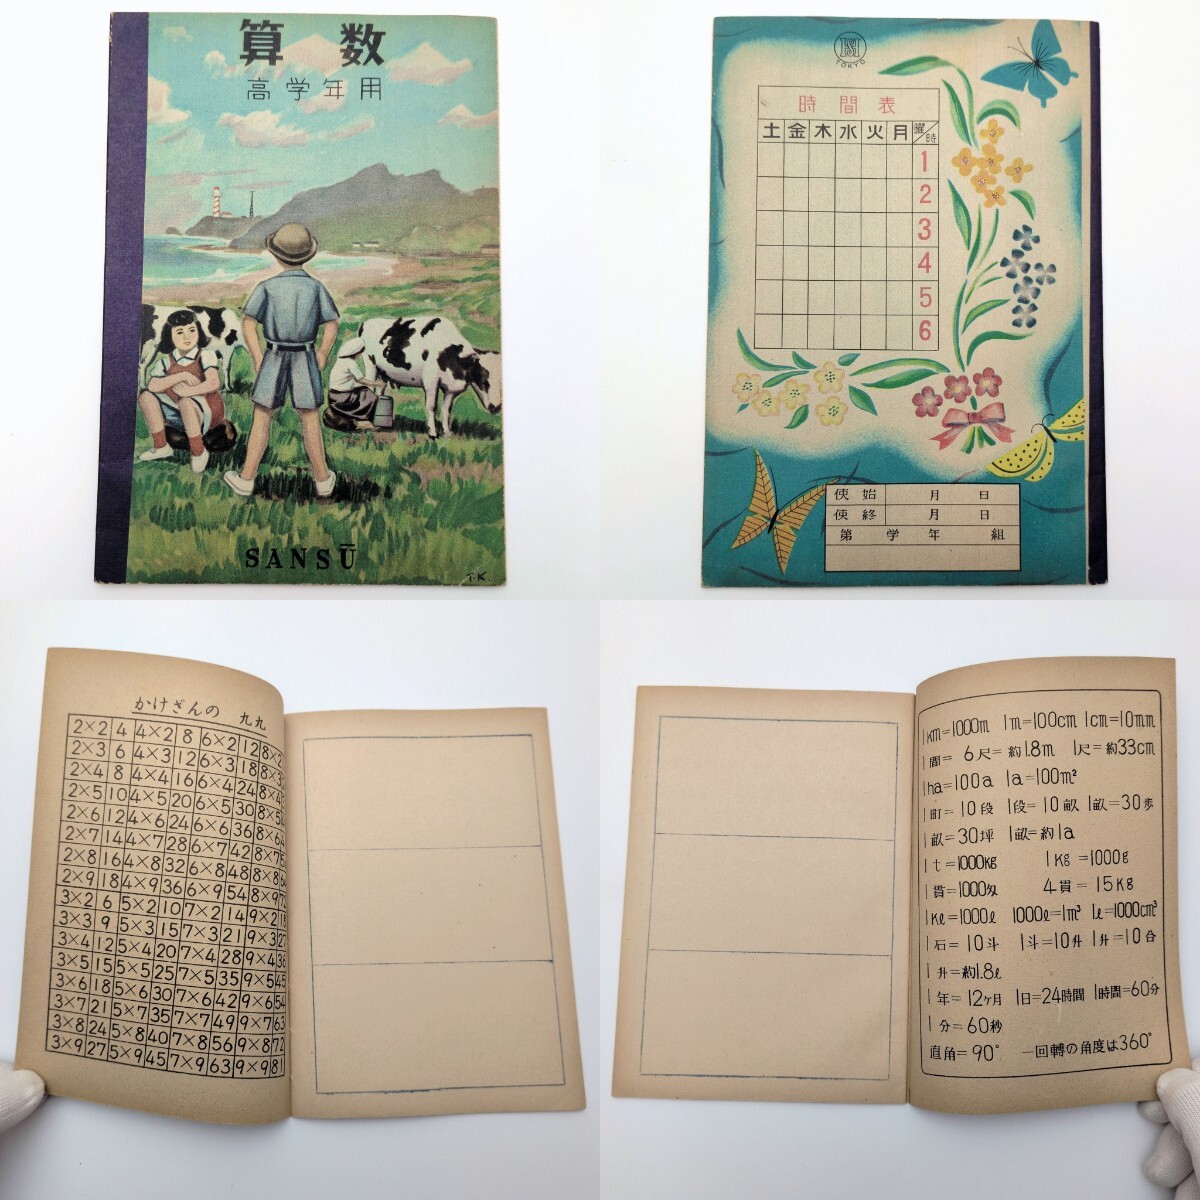 算数
高学年用
SANSŪ
T.K.
TOKYO
時間表
土 金 木 水 火 月 曜/時
1
2
3
4
5
6
使始 月 日
使終 月 日
第 学年 組
かけざんの 九九
2×2 4 4×2 8 6×2 12 8×2
2×3 6 4×3 12 6×3 18 8×3
2×4 8 4×4 16 6×4 24 8×4
2×5 10 4×5 20 6×5 30 8×5
2×6 12 4×6 24 6×6 36 8×6
2×7 14 4×7 28 6×7 42 8×7
2×8 16 4×8 32 6×8 48 8×8
2×9 18 4×9 36 6×9 54 8×9
3×2 6 5×2 10 7×2 14 9×2
3×3 9 5×3 15 7×3 21 9×3 27
3×4 12 5×4 20 7×4 28 9×4 36
3×5 15 5×5 25 7×5 35 9×5 45
3×6 18 5×6 30 7×6 42 9×6 54
3×7 21 5×7 35 7×7 49 9×7 63
3×8 24 5×8 40 7×8 56 9×8 72
3×9 27 5×9 45 7×9 63 9×9 81
1km=1000m 1m=100cm 1cm=10mm
1間=6尺=約1.8m 1尺=約33cm
1ha=100a 1a=100m²
1町=10段 1段=10畝 1畝=30歩
1畝=30坪 1畝=約1a
1t=1000kg 1kg=1000g
1貫=1000匁 4貫=15kg
1kl=1000l 1000l=1m³ 1l=1000cm³
1石=10斗 1斗=10升 1升=10合
1升=約1.8l
1年=12ヶ月 1日=24時間 1時間=60分
1分=60秒
直角=90° 一回轉の角度は360°